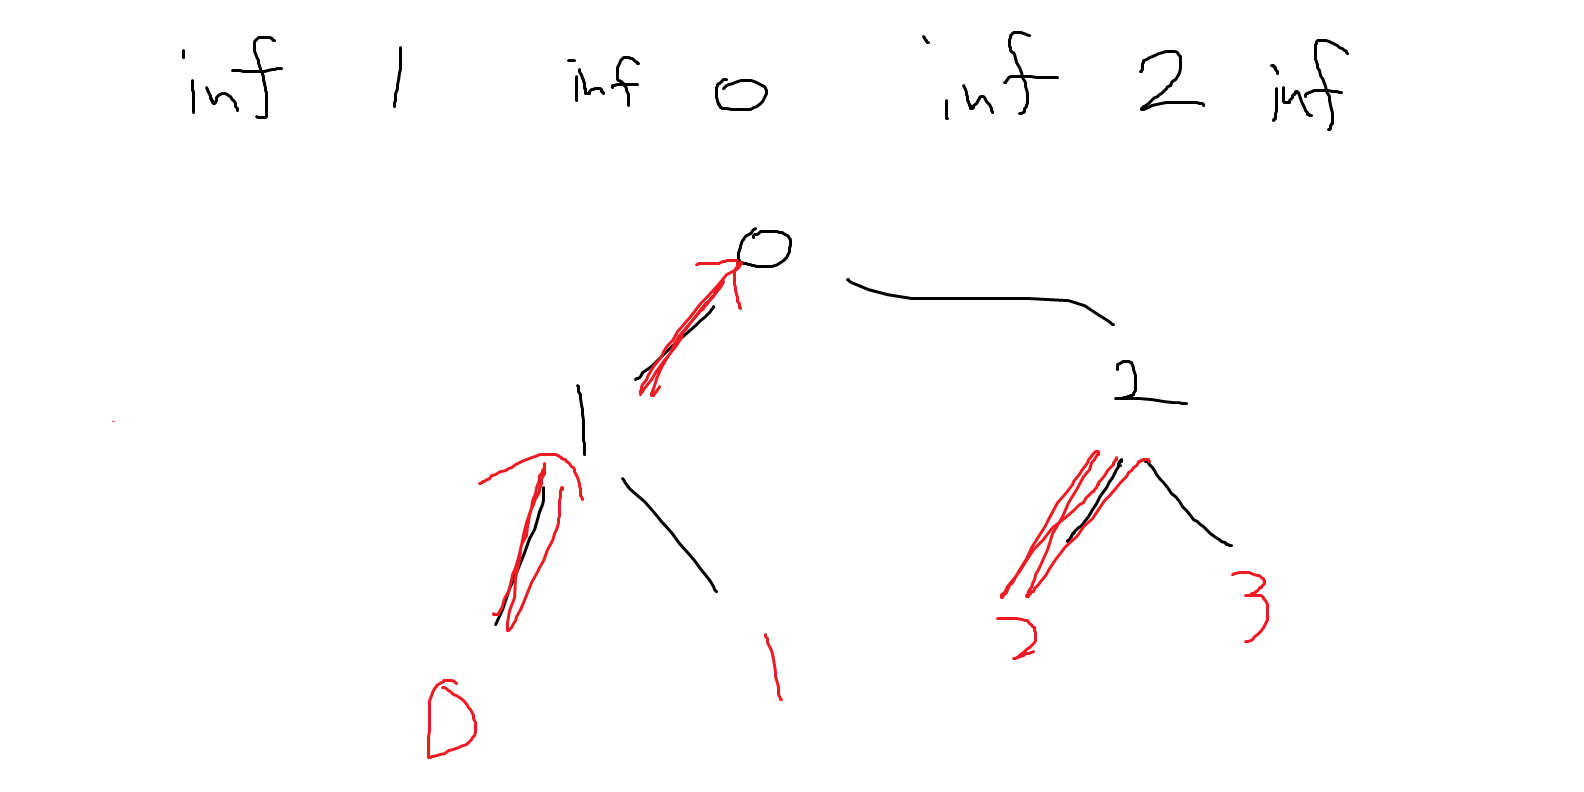 inf 1 inf 0 inf 2 inf
0
1 2
2 3
0 1